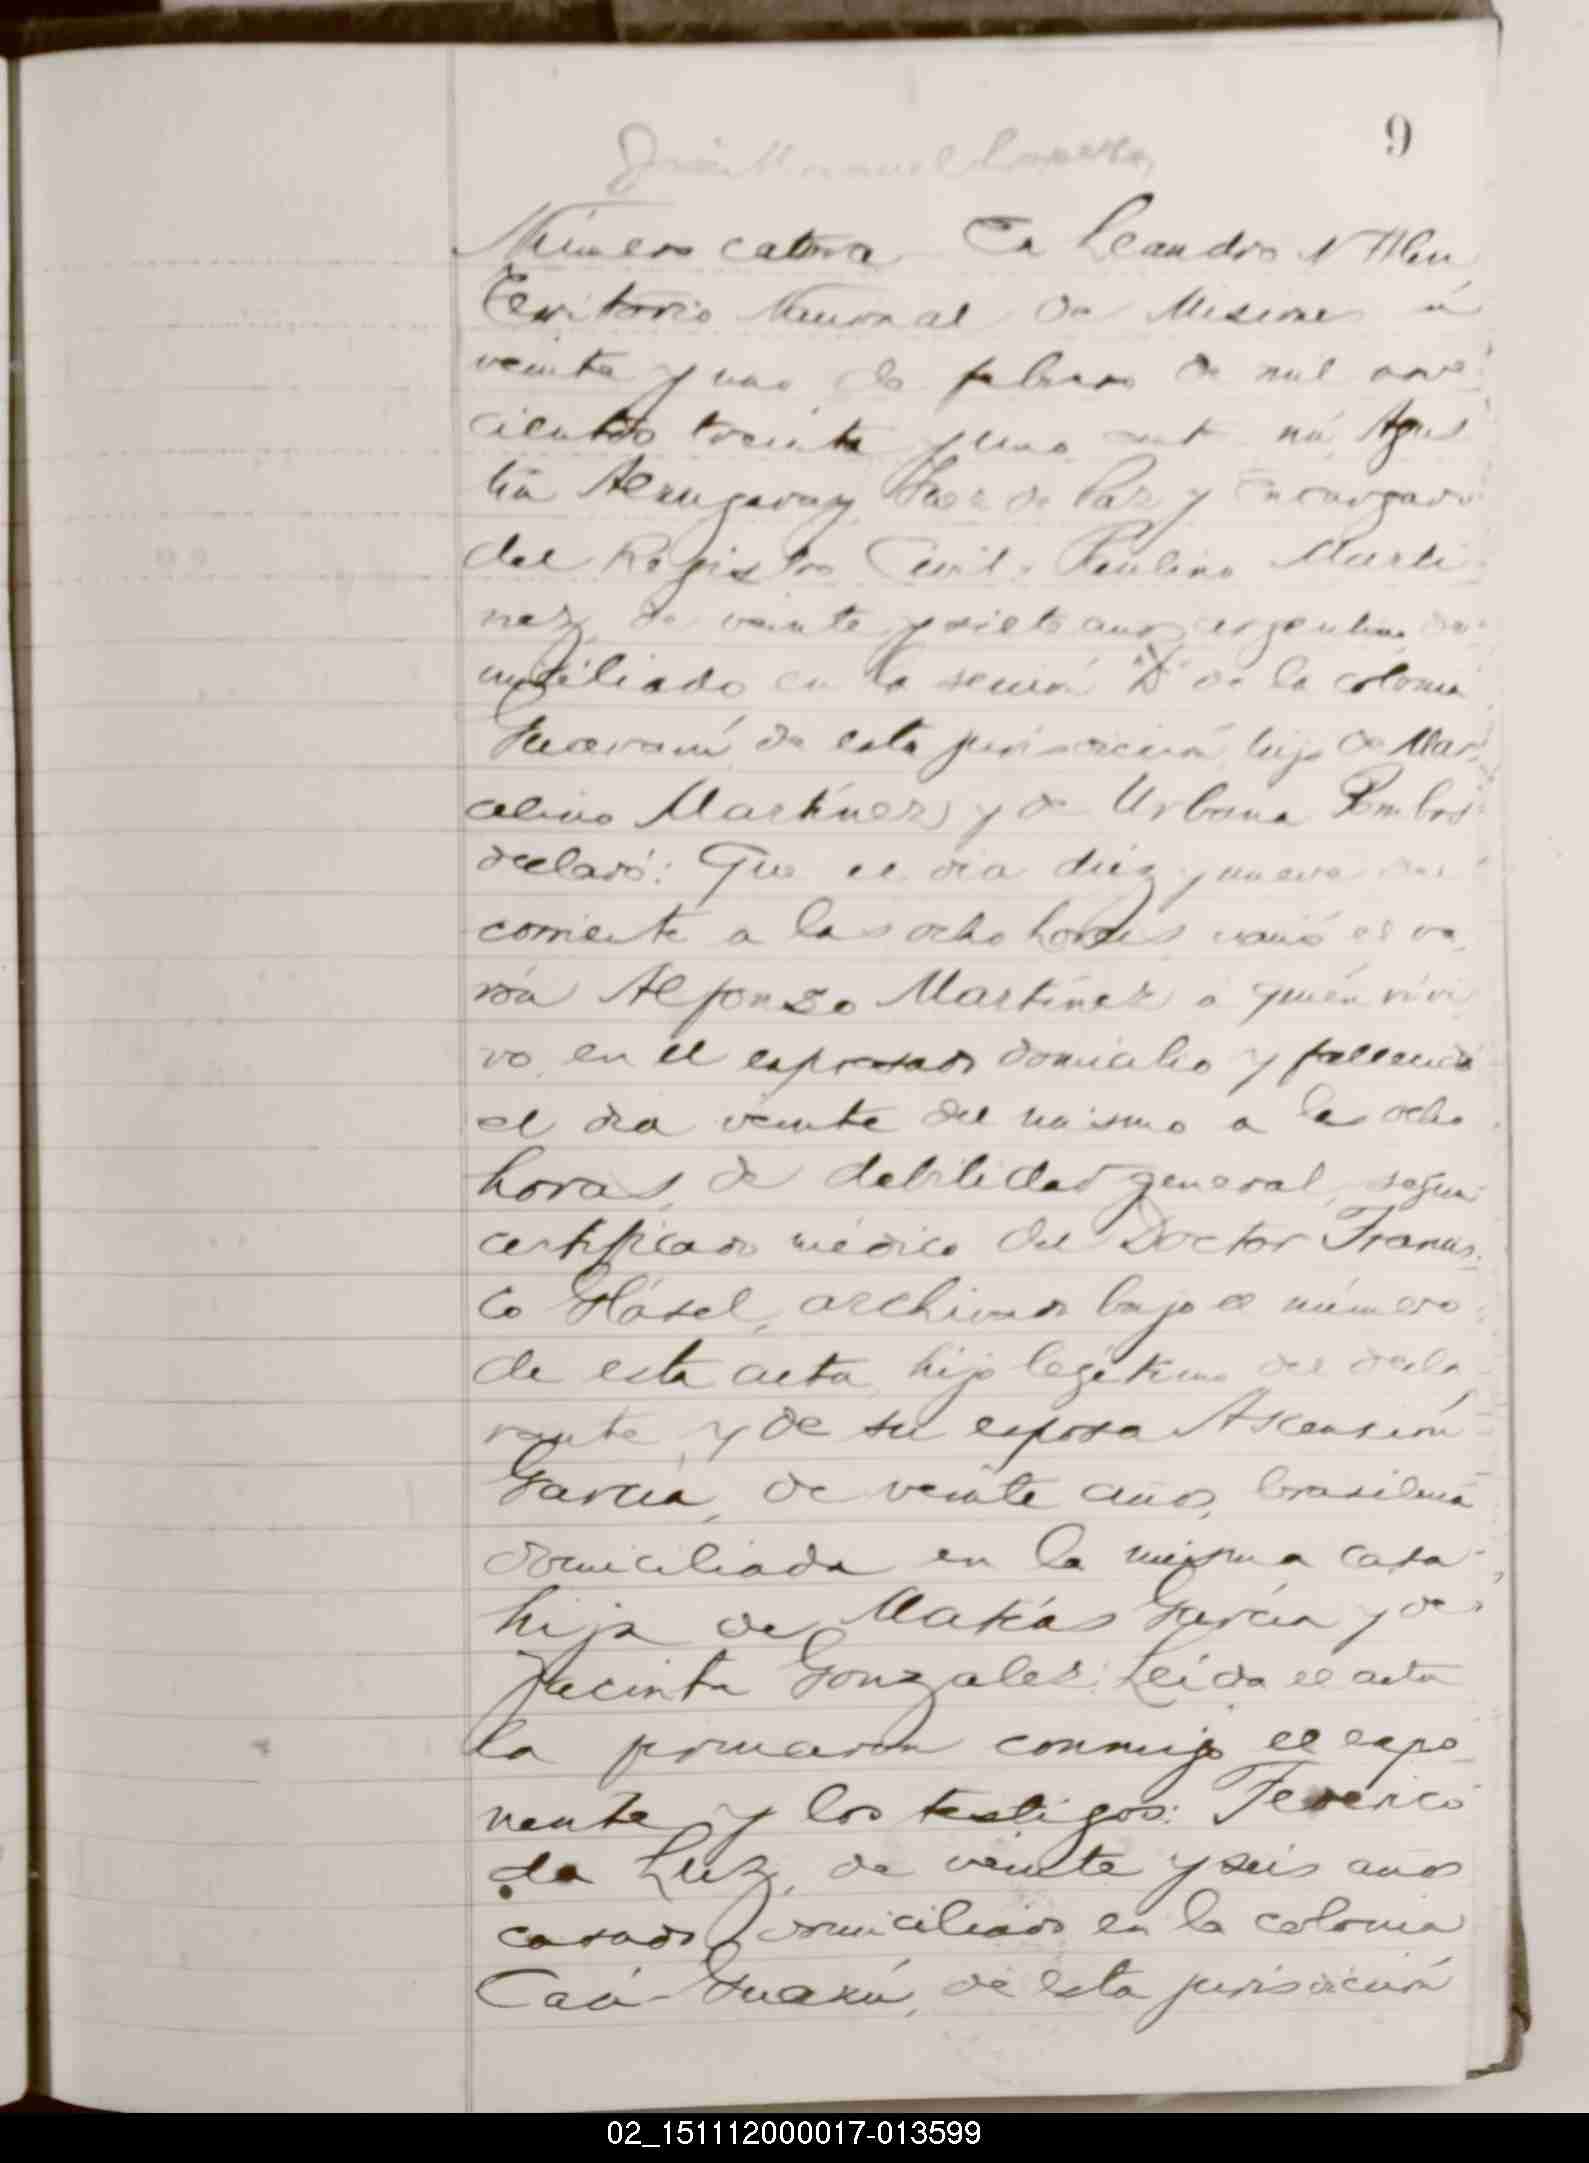 9
Número catorce. En Leandro N Alem
Territorio Nacional de Misiones a
veinte y uno de febrero de mil nove
cientos treinta y uno ante mi Agus
tín Jues de Paz y Encargado
del Registro Civil, Paulino Marti
nez de veinte y siete años argentino do
miciliado en la sección "D" de la colonia
Guaraní, de esta jurisdicción, hijo de Mar
celino Martínez y de Urbana
declaró: Que el dia diez y nueve del
corriente a las ocho horas, nació el va
rón Alfonzo Martínez a quién
vo, en el expresado domicilio y falleció
el dia veinte del mismo a las ocho
horas, de debilidad general, según
certificado médico del Doctor Francis
co archivado bajo el número
de esta acta, hijo legítimo del decla
rante y de su esposa Ascensión
García, de veinte años, brasilera
domiciliada en la misma casa,
hija de Matías García y de
Jacinta Gonzalez. Leída el acta
la firmaron conmigo el expo
nente y los testigos: Federico
da Luz, de veinte y seis años
casado, domiciliado en la colonia
Caá-Guazú, de esta jurisdicción
02_151112000017-013599